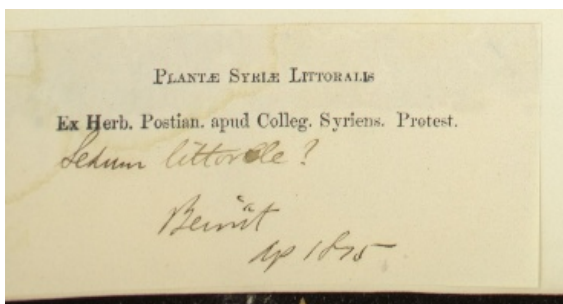 PLANTÆ SYRIÆ LITTORALIS
Ex Herb. Postian. apud Colleg. Syriens. Protest.
Sedum littorale ?
Beirût
Ap 1875